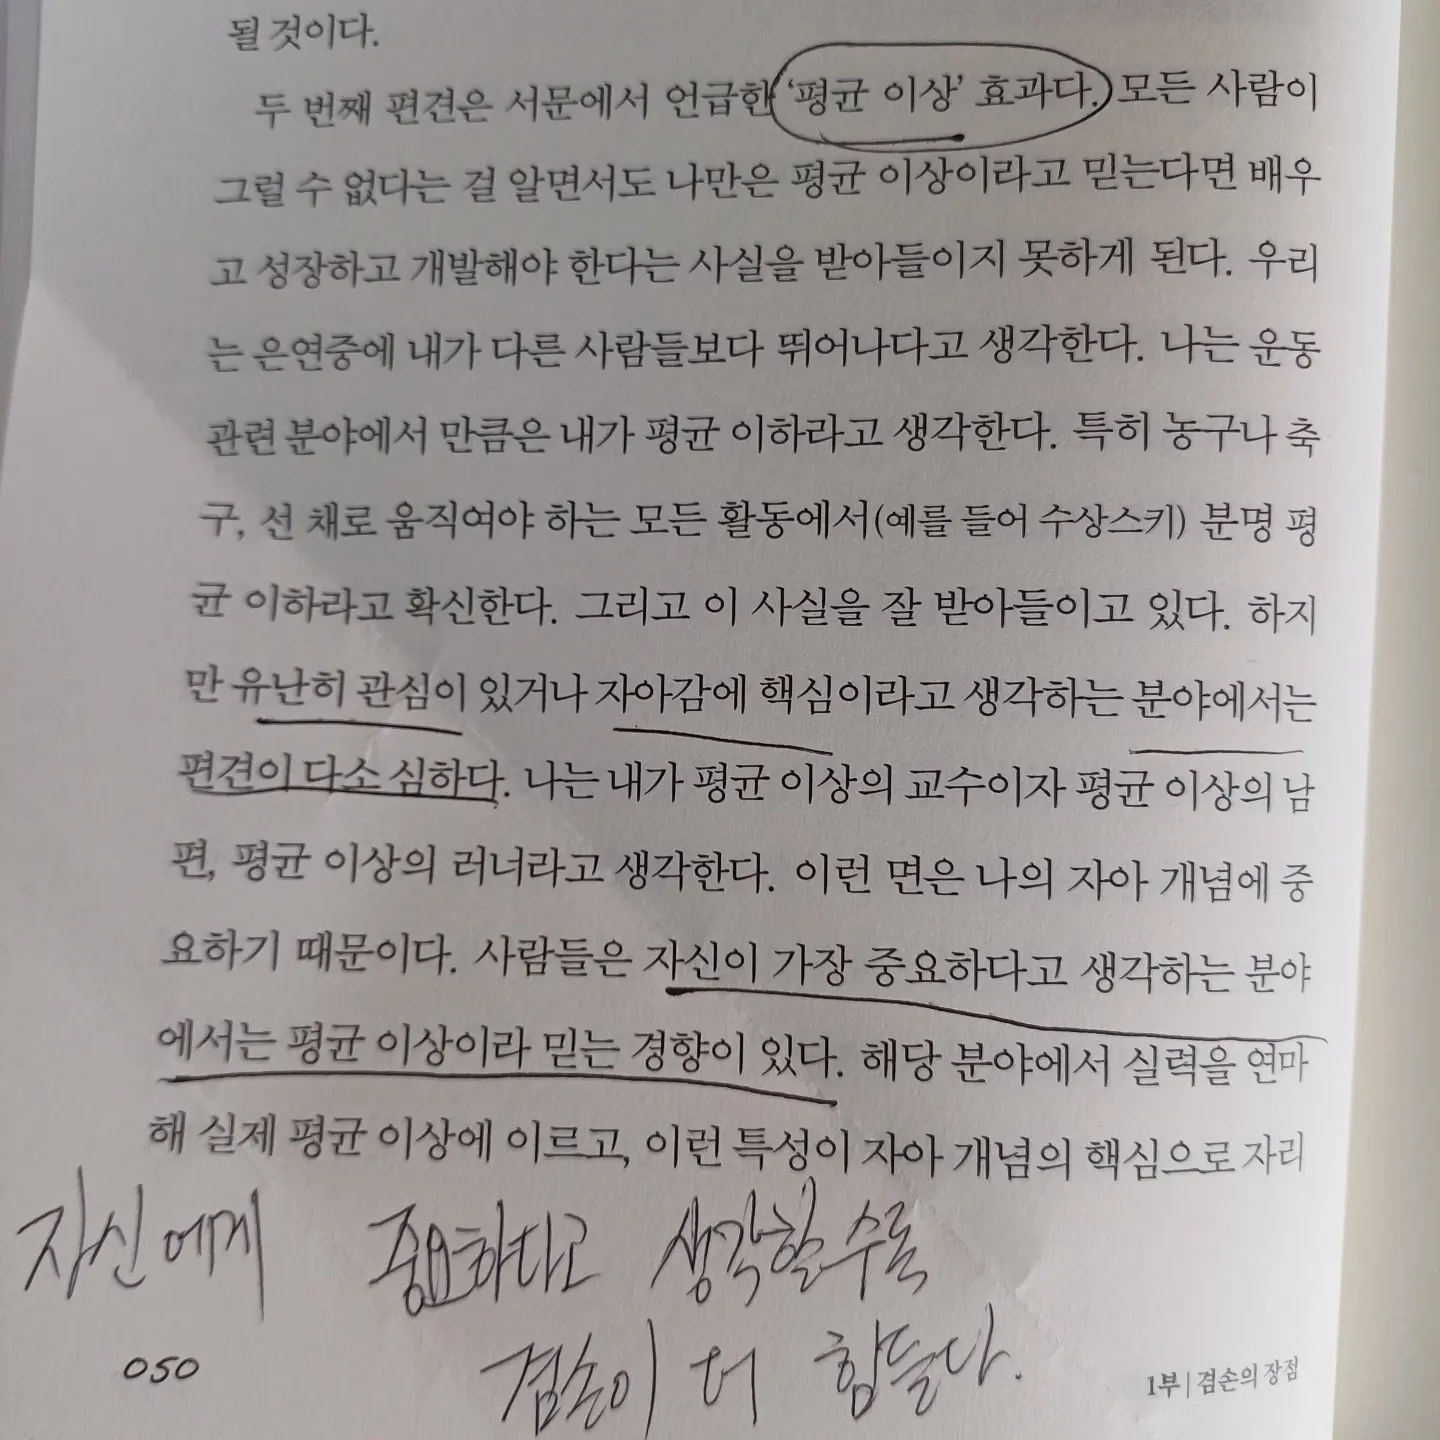 될 것이다.
두 번째 편견은 서문에서 언급한 ‘평균 이상’ 효과다. 모든 사람이
그럴 수 없다는 걸 알면서도 나만은 평균 이상이라고 믿는다면 배우
고 성장하고 개발해야 한다는 사실을 받아들이지 못하게 된다. 우리
는 은연중에 내가 다른 사람들보다 뛰어나다고 생각한다. 나는 운동
관련 분야에서 만큼은 내가 평균 이하라고 생각한다. 특히 농구나 축
구, 선 채로 움직여야 하는 모든 활동에서(예를 들어 수상스키) 분명 평
균 이하라고 확신한다. 그리고 이 사실을 잘 받아들이고 있다. 하지
만 유난히 관심이 있거나 자아감에 핵심이라고 생각하는 분야에서는
편견이 다소 심하다. 나는 내가 평균 이상의 교수이자 평균 이상의 남
편, 평균 이상의 러너라고 생각한다. 이런 면은 나의 자아 개념에 중
요하기 때문이다. 사람들은 자신이 가장 중요하다고 생각하는 분야
에서는 평균 이상이라 믿는 경향이 있다. 해당 분야에서 실력을 연마
해 실제 평균 이상에 이르고, 이런 특성이 자아 개념의 핵심으로 자리
자신에게 중요하다고 생각할수록
겸손이 더 힘들다.
050
1부 | 겸손의 장점